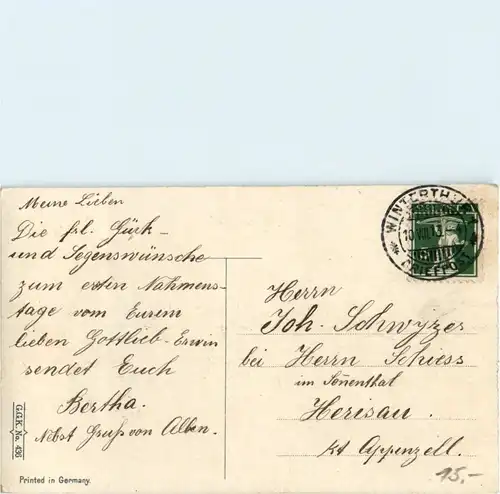 Meine Lieben
Die frl. Glück-
und Segenswünsche
zum ersten Nahmens-
tage vom Eurem
lieben Gottlieb-Erwin
sendet Euch
Bertha.
Nebst Gruss von Allen.
G.G.K. No. 436
Printed in Germany.
WINTERTHUR
10.VIII.13
BRIEFPOST
Herrn
Joh. Schwyzer
bei Herrn Schiess
im Sonnenthal
Herisau.
Kt Appenzell.
15,-